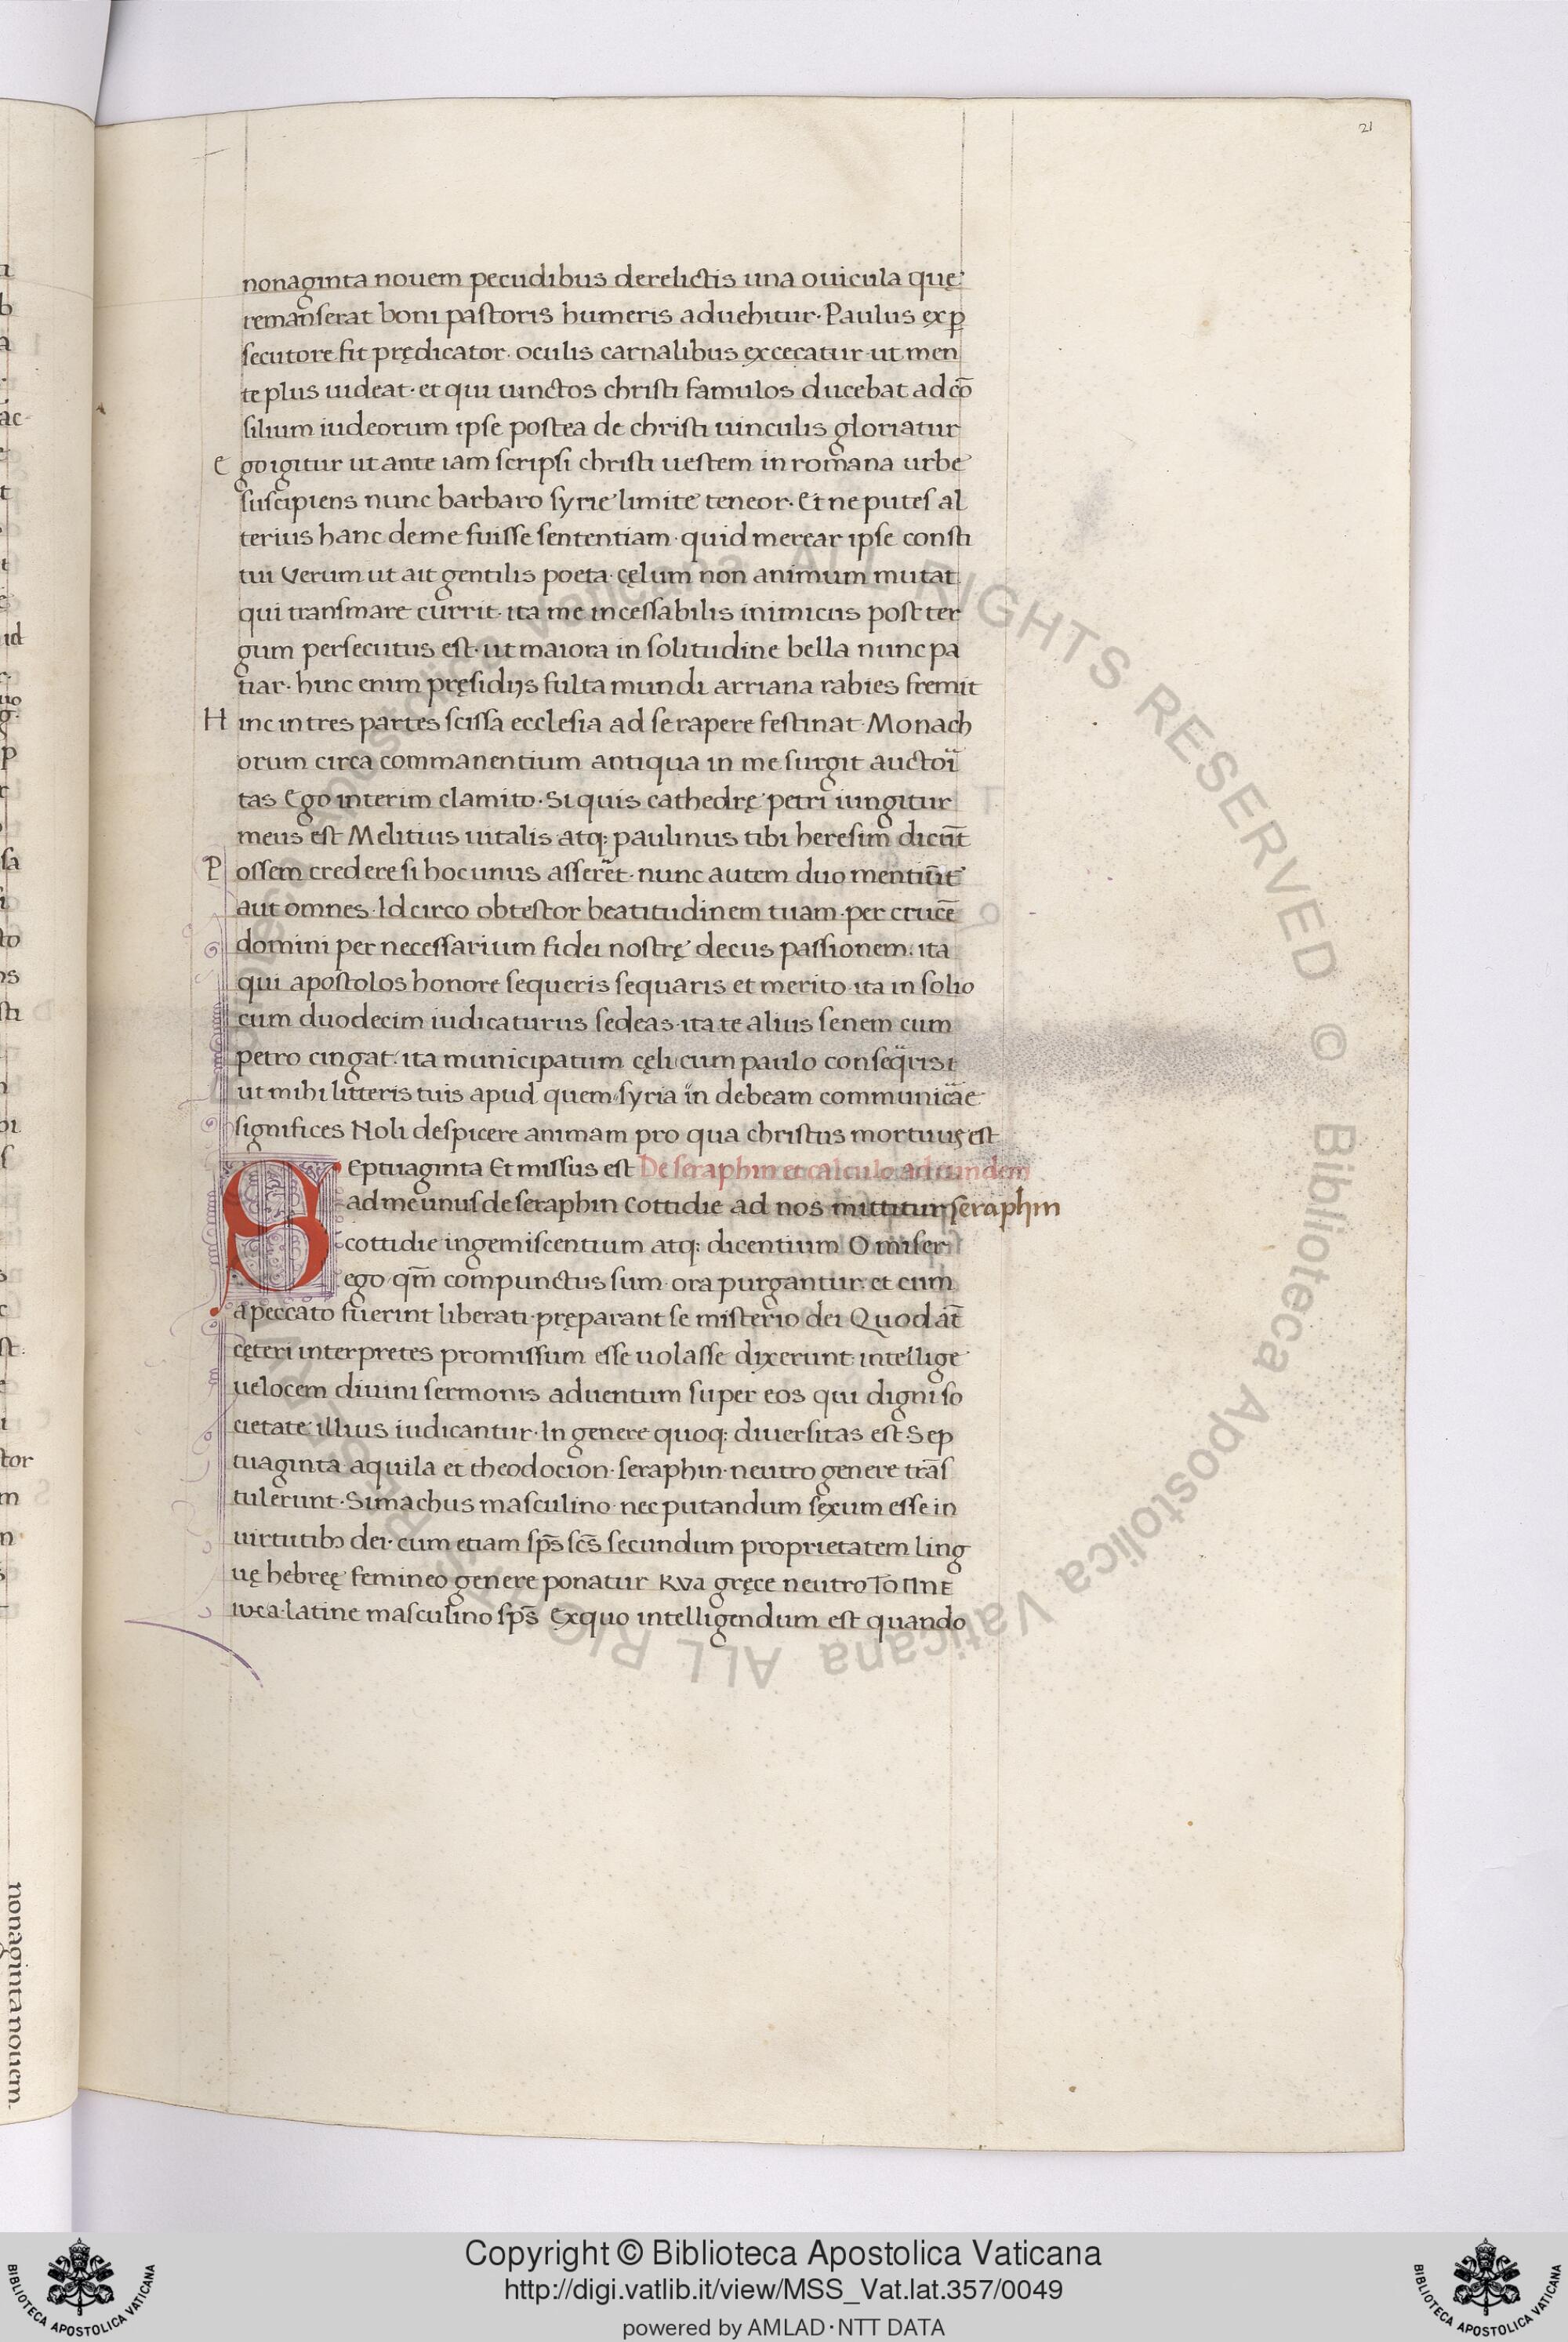 21
nonaginta nouem pecudibus derelictis una ouicula quę
remanserat boni pastoris humeris aduehitur· Paulus ex p̱
secutore fit prędicator· oculis carnalibus excecatur· ut men
te plus uideat· et qui uinctos christi famulos ducebat ad cō
silium iudeorum ipse postea de christi uinculis gloriatur
E go igitur ut ante iam scripsi christi uestem in romana urbe
suscipiens nunc barbaro syrie limite teneor· Et ne putes al
terius hanc de me fuisse sententiam· quid merear ipse consti
tui Verum ut ait gentilis poeta· cęlum non animum mutat
qui trans mare currit· ita me incessabilis inimicus post ter
gum persecutus est· ut maiora in solitudine bella nunc pa
tiar· hinc enim pręsidijs fulta mundi arriana rabies fremit
H inc in tres partes scissa ecclesia ad se rapere festinat· Monach
orum circa commanentium antiqua in me surgit auctoi
tas Ego interim clamito· Si quis cathedrę petri iungitur
meus est Melitius uitalis atq: paulinus tibi heresim dicūt
P ossem credere si hoc unus asseret· nunc autem duo mentiūt
aut omnes· Id circo obtestor beatitudinem tuam· per crucē
domini per necessarium fidei nostrę decus passionem: ita
qui apostolos honore sequeris sequaris et merito· ita in solio
cum duodecim iudicaturus sedeas· ita te alius senem cum
petro cingat: ita municipatum cęli cum paulo conseq̈ris·
ut mihi litteris tuis apud quem syria in debeam communicäe
significes Noli despicere animam pro qua christus mortuus est
SEptuaginta Et missus est De seraphin et calculo ad eundem
ad me unus de seraphin Cottidie ad nos mittitur seraphin
cottidie ingemiscentium atq: dicentium O miser
ego qm̄ compunctus sum· ora purgantur: et cum
a peccato fuerint liberati· pręparant se misterio dei Quod aūt
cęteri interpretes promissum esse uolasse dixerunt: intellige
uelocem diuini sermonis aduentum super eos qui digni so
cietate illius iudicantur· In genere quoq: diuersitas est· Sep
tuaginta· aquila et theodocion· seraphin· neutro genere trās
tulerunt· Simachus masculino· nec putandum sexum esse in
uirtutibɔ dei· cum etiam sp̄s sc̄s secundum proprietatem ling
uę hebreę femineo genere ponatur Rva gręce neutro To ΠΝΕ
ιvεa· latine masculino sp̄s Ex quo intelligendum est quando
nonaginta nouem
Copyright © Biblioteca Apostolica Vaticana
http://digi.vatlib.it/view/MSS_Vat.lat.357/0049
powered by AMLAD·NTT DATA
BIBLIOTECA APOSTOLICA VATICANA
BIBLIOTECA APOSTOLICA VATICANA
ALL RIGHTS RESERVED © Biblioteca Apostolica Vaticana